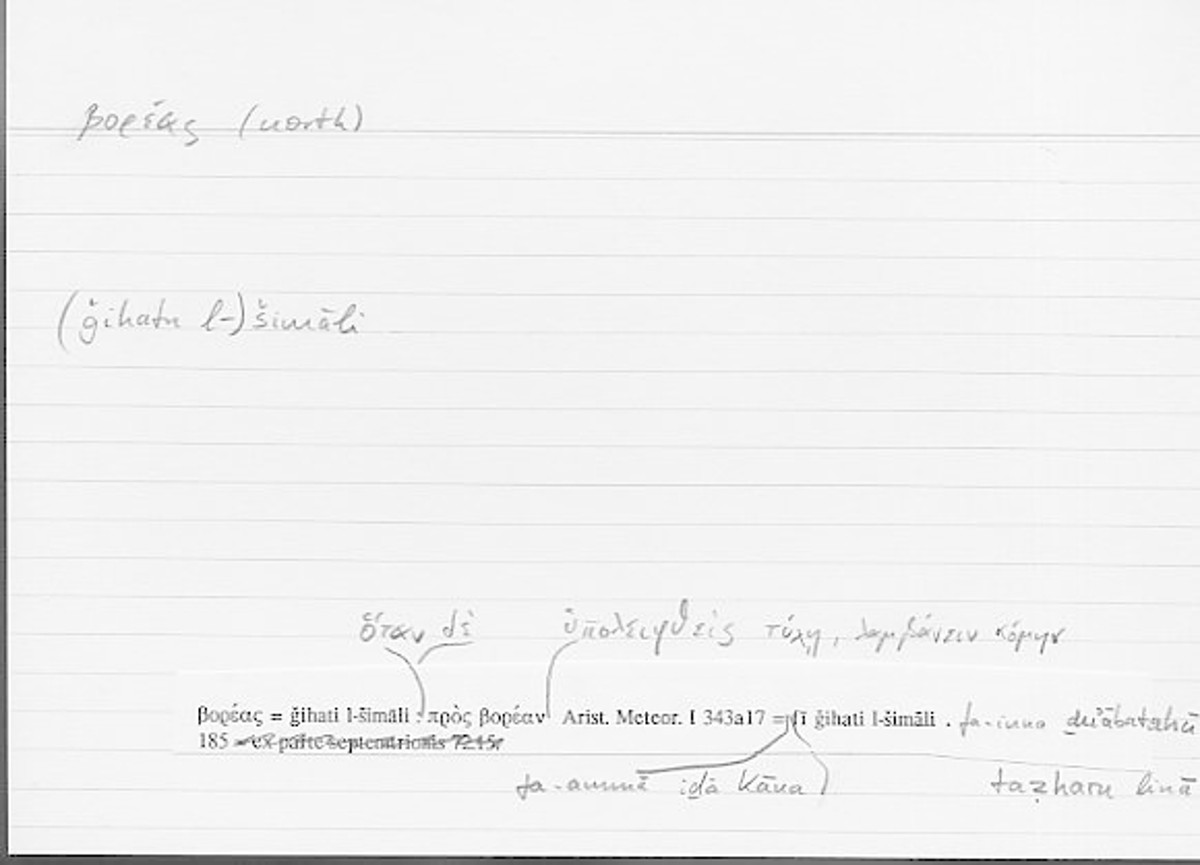 βορέας (north)
(ǧihatu l-) šimāli
ὅταν δὲ ὑπολειφθεὶς τύχῃ, λαμβάνειν κόμην
βορέας = ǧihati l-šimāli : πρὸς βορέαν Arist. Meteor. I 343a17 = fī ǧihati l-šimāli . fa-inna ḏu'ābatahū
185 = ex parte septentrionis 7215r
fa-ammā iḏā kāna taẓharu linā